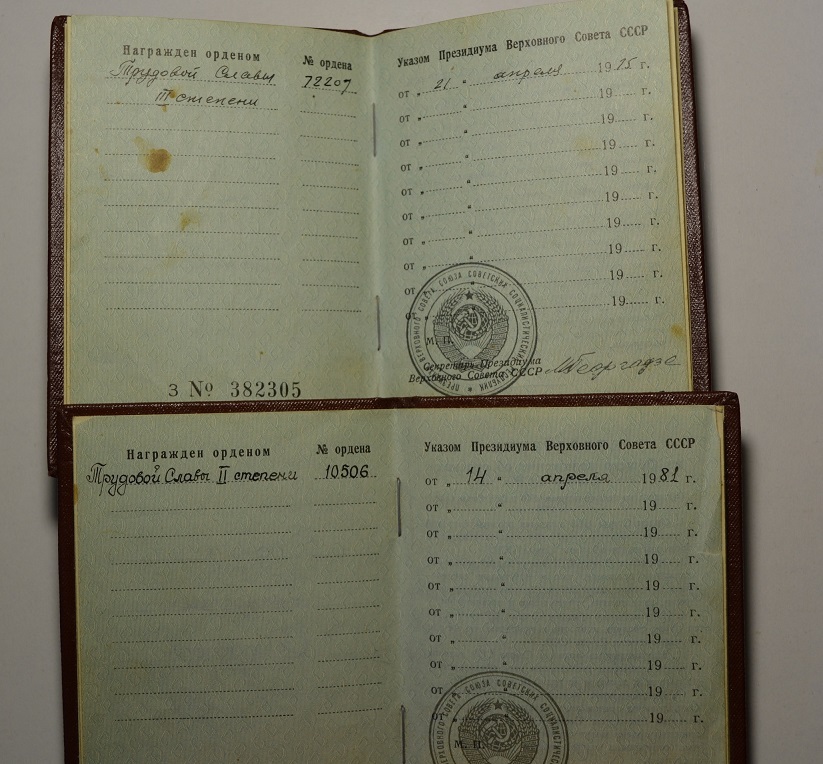 Награжден орденом
№ ордена
Трудовой Славы
72207
III степени
З № 382305
Указом Президиума Верховного Совета СССР
от „ 21 “ апреля 1975 г.
от „ “ 19 г.
от „ “ 19 г.
от „ “ 19 г.
от „ “ 19 г.
от „ “ 19 г.
от „ “ 19 г.
от „ “ 19 г.
от „ “ 19 г.
от „ “ 19 г.
М. П.
Секретарь Президиума
Верховного Совета СССР
М Георгадзе
ВЕРХОВНОГО СОВЕТА СОЮЗА СОВЕТСКИХ СОЦИАЛИСТИЧЕСКИХ РЕСПУБЛИК
Награжден орденом
№ ордена
Трудовой Славы II степени
10506
Указом Президиума Верховного Совета СССР
от „ 14 “ апреля 1981 г.
от „ “ 19 г.
от „ “ 19 г.
от „ “ 19 г.
от „ “ 19 г.
от „ “ 19 г.
от „ “ 19 г.
от „ “ 19 г.
от „ “ 19 г.
от „ “ 19 г.
М. П.
ВЕРХОВНОГО СОВЕТА СОЮЗА СОВЕТСКИХ